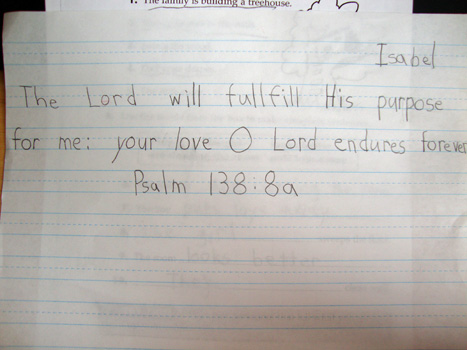 1. The family is building a treehouse.
Isabel
The Lord will fullfill His purpose
for me: your love O Lord endures forever
Psalm 138:8a